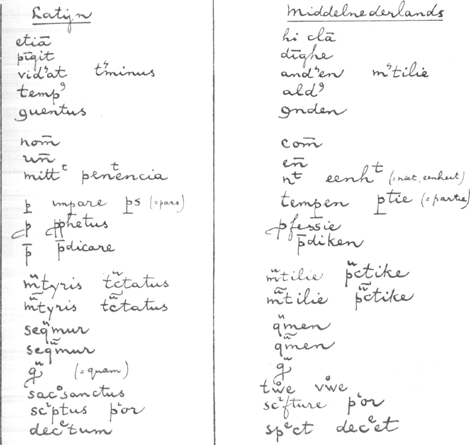 Latijn
etiā
pīgit
vid᾿at t᾿minus
tempꝰ
ꝯuentus
nom̄
un̄
mittᵗ penᵗencia
ꝑ impare ꝑs (=pars)
ꝓ ꝓphetus
p̄ p̄dicare
mᵃtyris tᵃctatus
m̄ᵃtyris tᵃctatus
seqᵃmur
seqᵃmur
qᵃ (=quam)
sacᵒsanctus
scⁱptus pⁱor
decᵉtum
Middelnederlands
hi clā
dīghe
and᾿en m᾿tilie
aldꝰ
ꝯnden
com̄
en̄
nᵗ eenhᵗ (=niet, eenheit)
tempen ꝑtie (=partie)
ꝓfessie
p̄diken
mᵃtilie pᵃctike
m̄ᵃtilie pᵃctike
qᵃmen
qᵃmen
qᵃ
twᵒe vwᵒe
scⁱfture pⁱor
spᵉct decᵉet